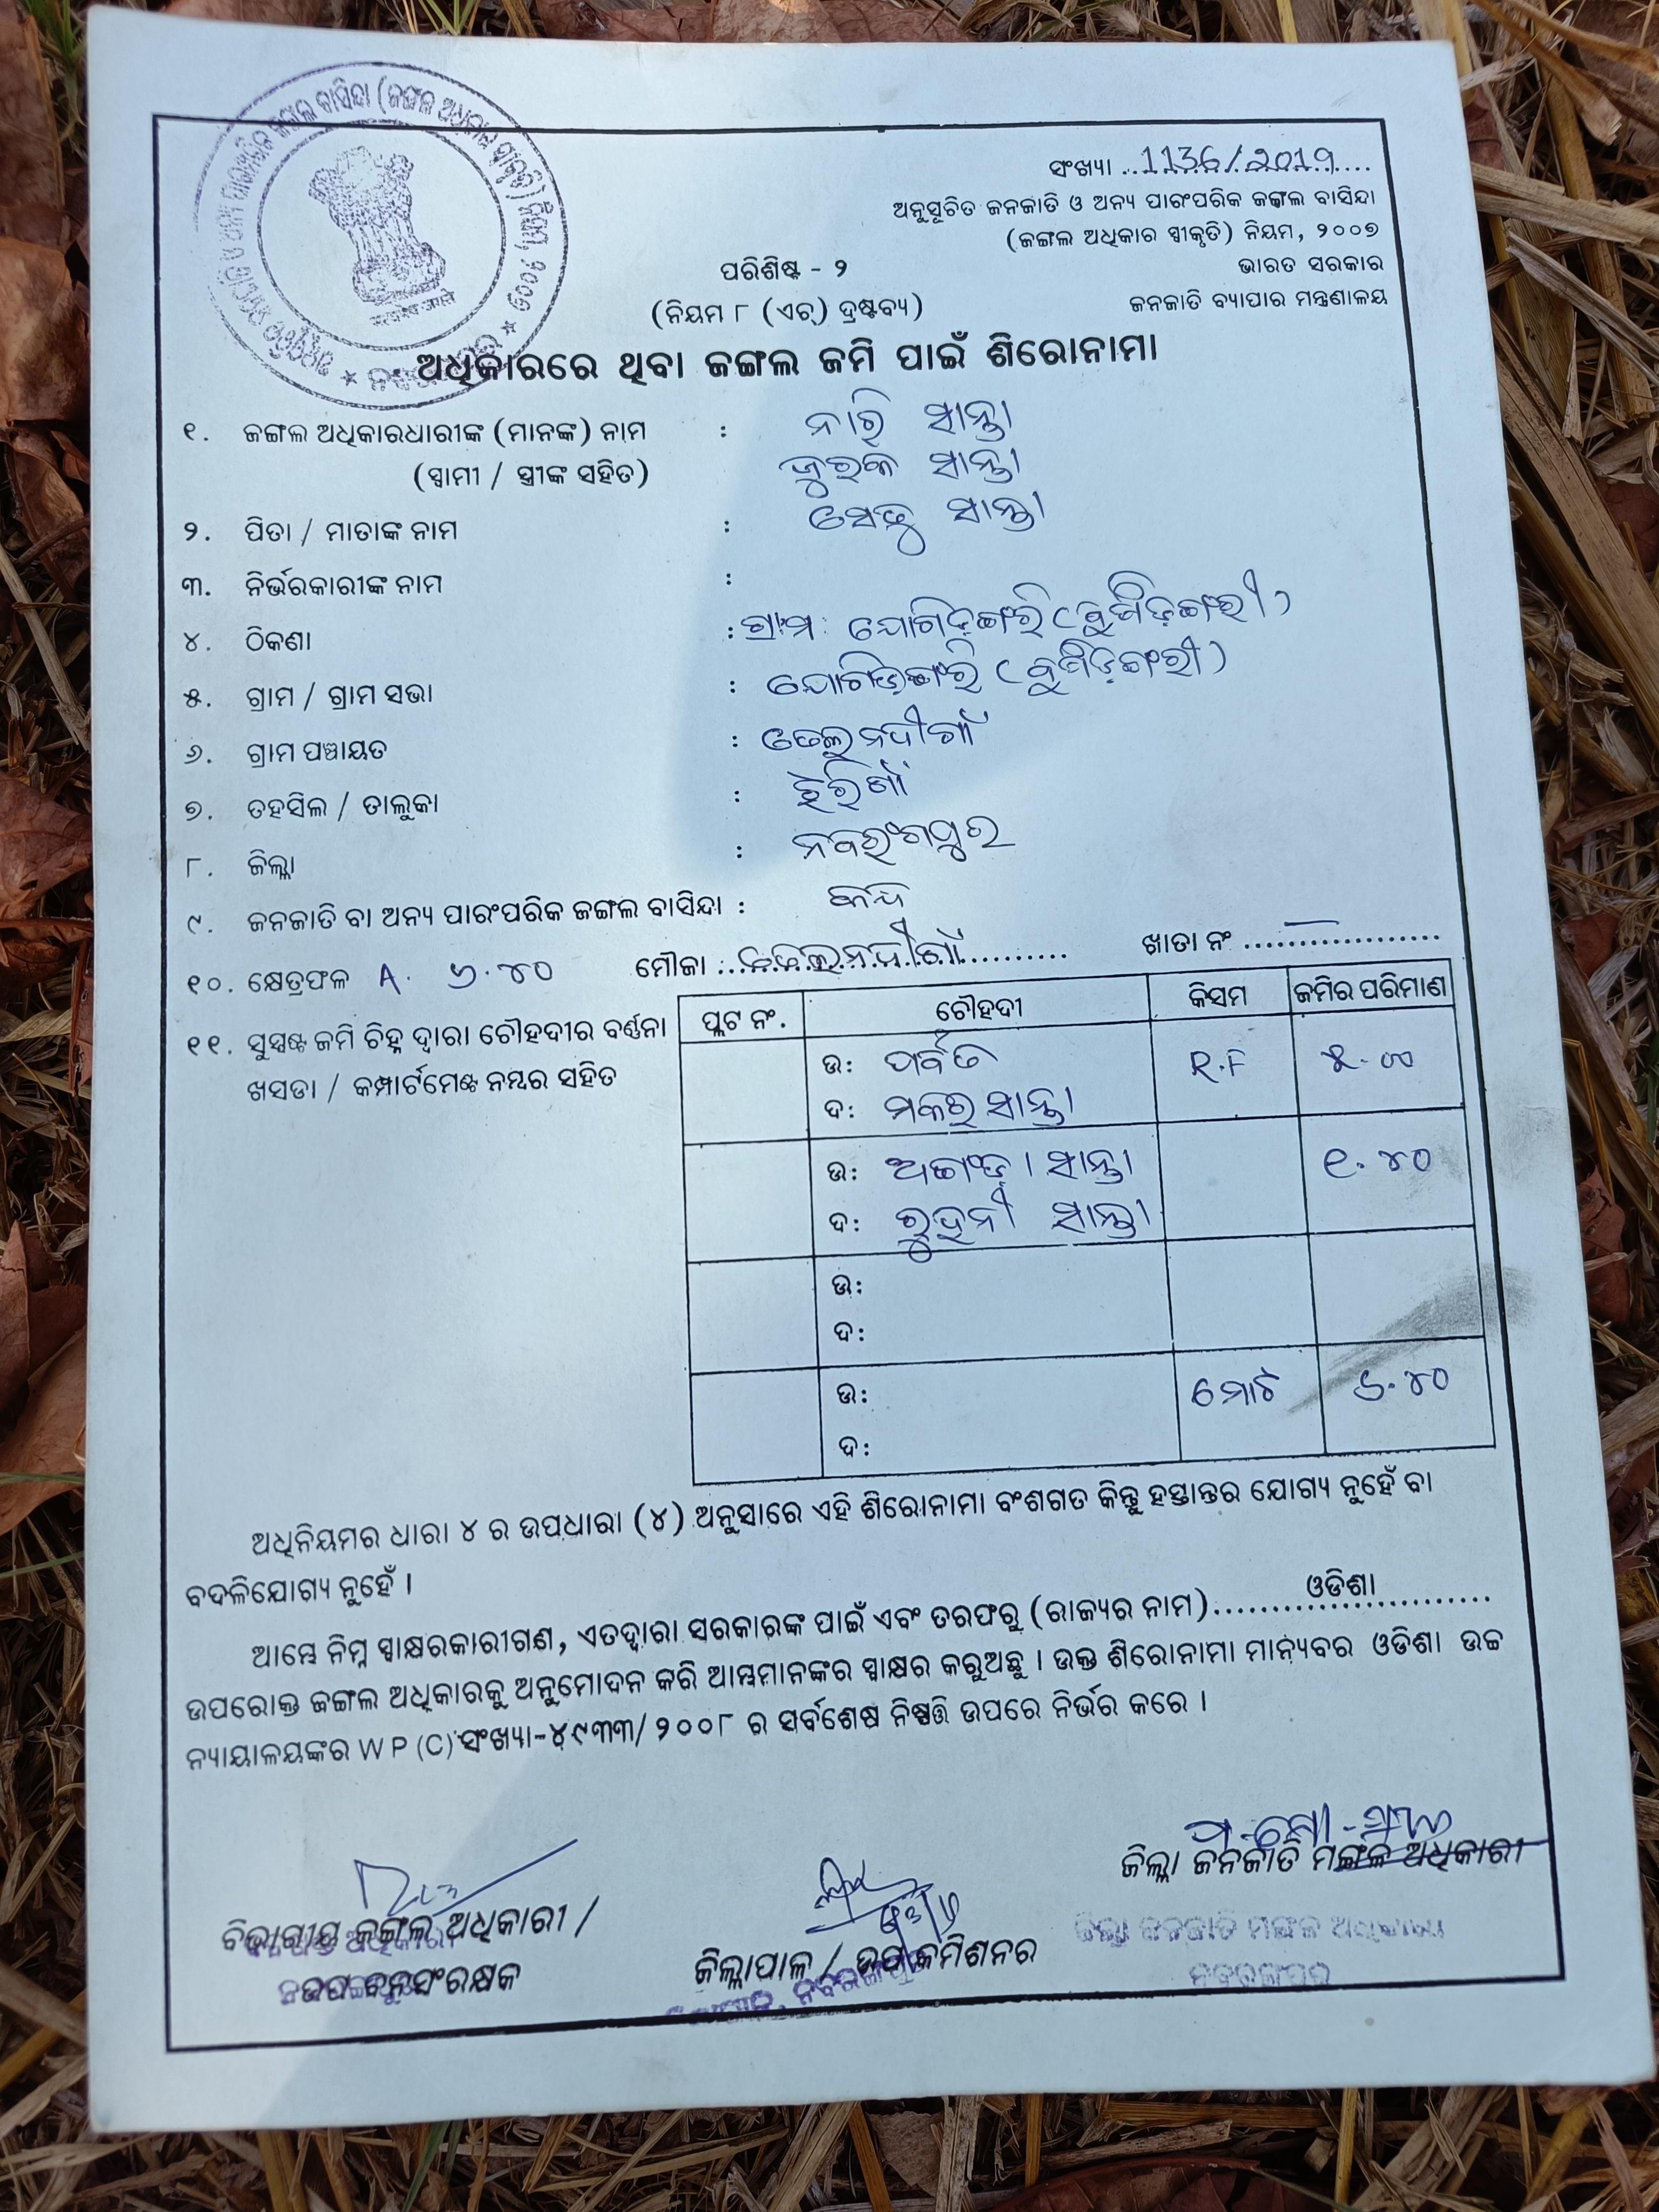 ସଂଖ୍ୟା ..1136/2019....
ଅନୁସୂଚିତ ଜନଜାତି ଓ ଅନ୍ୟ ପାରଂପରିକ ଜଙ୍ଗଲ ବାସିନ୍ଦା
(ଜଙ୍ଗଲ ଅଧିକାର ସ୍ୱୀକୃତି) ନିୟମ, ୨୦୦୭
ଭାରତ ସରକାର
ଜନଜାତି ବ୍ୟାପାର ମନ୍ତ୍ରଣାଳୟ
ପରିଶିଷ୍ଟ - ୨
(ନିୟମ ୮ (ଏଚ୍) ଦ୍ରଷ୍ଟବ୍ୟ)
ଅଧିକାରରେ ଥିବା ଜଙ୍ଗଲ ଜମି ପାଇଁ ଶିରୋନାମା
୧. ଜଙ୍ଗଲ ଅଧିକାରଧାରୀଙ୍କ (ମାନଙ୍କ) ନାମ : ନାରି ସାନ୍ତା
(ସ୍ୱାମୀ / ସ୍ତ୍ରୀଙ୍କ ସହିତ) ଜୁରକ ସାନ୍ତା
୨. ପିତା / ମାତାଙ୍କ ନାମ : ସାନ୍ତା
୩. ନିର୍ଭରକାରୀଙ୍କ ନାମ :
୪. ଠିକଣା : ଗ୍ରାମ:
୫. ଗ୍ରାମ / ଗ୍ରାମ ସଭା :
୬. ଗ୍ରାମ ପଞ୍ଚାୟତ :
୭. ତହସିଲ / ତାଲୁକା :
୮. ଜିଲ୍ଲା : ନବରଂଗପୁର
୯. ଜନଜାତି ବା ଅନ୍ୟ ପାରଂପରିକ ଜଙ୍ଗଲ ବାସିନ୍ଦା : କନ୍ଧ
୧୦. କ୍ଷେତ୍ରଫଳ A. ୬.୪୦ ମୌଜା : ଖାତା ନଂ ....................
୧୧. ସୁସ୍ପଷ୍ଟ ଜମି ଚିହ୍ନ ଦ୍ୱାରା ଚୌହଦୀର ବର୍ଣ୍ଣନା
ଖସଡା / କମ୍ପାର୍ଟମେଣ୍ଟ ନମ୍ବର ସହିତ
ପ୍ଲଟ ନଂ. ଚୌହଦୀ କିସମ ଜମିର ପରିମାଣ
ଉ: ପର୍ବତ R.F ୫.୦୦
ଦ: ମକର ସାନ୍ତା
ଉ: ସାନ୍ତା ୧.୪୦
ଦ: ରୁହନୀ ସାନ୍ତା
ଉ:
ଦ:
ଉ: ମୋଟ ୬.୪୦
ଦ:
ଅଧିନିୟମର ଧାରା ୪ ର ଉପଧାରା (୪) ଅନୁସାରେ ଏହି ଶିରୋନାମା ବଂଶଗତ କିନ୍ତୁ ହସ୍ତାନ୍ତର ଯୋଗ୍ୟ ନୁହେଁ ବା
ବଦଳିଯୋଗ୍ୟ ନୁହେଁ ।
ଆମ୍ଭେ ନିମ୍ନ ସ୍ୱାକ୍ଷରକାରୀଗଣ, ଏତଦ୍ୱାରା ସରକାରଙ୍କ ପାଇଁ ଏବଂ ତରଫରୁ (ରାଜ୍ୟର ନାମ) ଓଡିଶା
ଉପରୋକ୍ତ ଜଙ୍ଗଲ ଅଧିକାରକୁ ଅନୁମୋଦନ କରି ଆମ୍ଭମାନଙ୍କର ସ୍ୱାକ୍ଷର କରୁଅଛୁ । ଉକ୍ତ ଶିରୋନାମା ମାନ୍ୟବର ଓଡିଶା ଉଚ୍ଚ
ନ୍ୟାୟାଳୟଙ୍କର W P (C) ସଂଖ୍ୟା-୪୯୩୩/୨୦୦୮ ର ସର୍ବଶେଷ ନିଷ୍ପତ୍ତି ଉପରେ ନିର୍ଭର କରେ ।
ଜିଲ୍ଲା ଜନଜାତି ମଙ୍ଗଳ ଅଧିକାରୀ
ବିଭାଗୀୟ ଜଙ୍ଗଲ ଅଧିକାରୀ /
ଉପ ବନ ସଂରକ୍ଷକ
ଜିଲ୍ଲାପାଳ / ଉପ କମିଶନର
ଜିଲ୍ଲା ଜନଜାତି ମଙ୍ଗଳ ଅଧିକାରୀ
ନବରଙ୍ଗପୁର